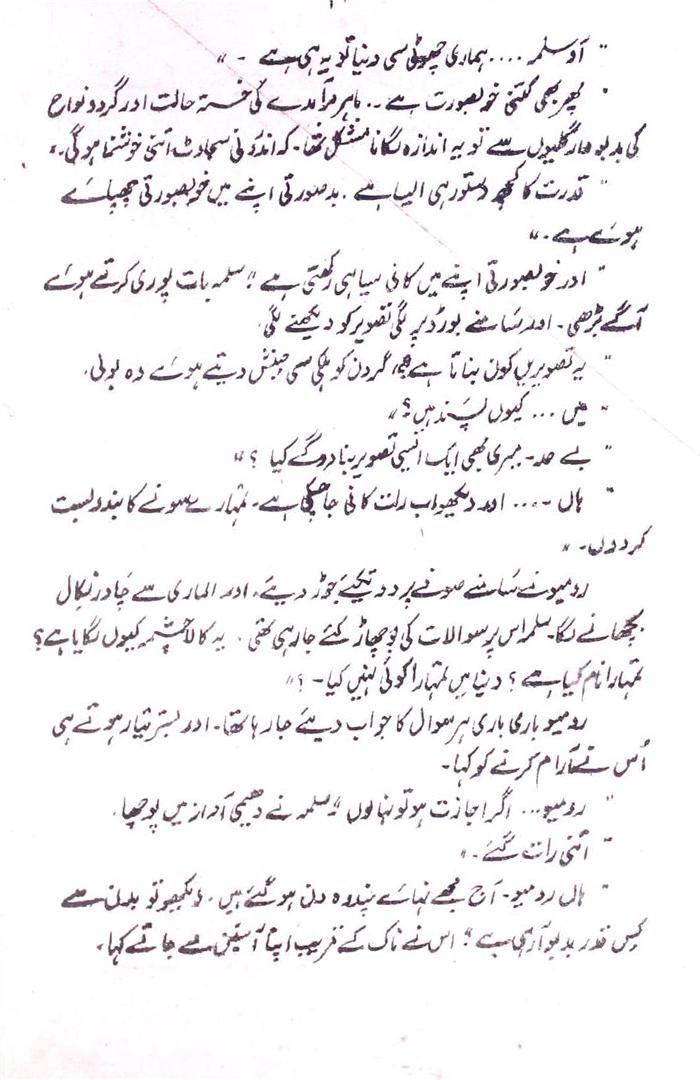 " آؤ سلمہ .... ہماری چھوٹی سی دنیا تو یہ ہی ہے - "
" پھر بھی کتنی خوبصورت ہے .. باہر برآمدے کی خستہ حالت اور گرد و نواح
کی بدبودار گلیوں سے تو یہ اندازہ لگانا مشکل تھا - کہ اندرونی سجاوٹ اتنی خوشنما ہو گی - "
" قدرت کا کچھ دستور ہی ایسا ہے . بدصورتی اپنے میں خوبصورتی چھپائے
ہوئے ہے - "
" اور خوبصورتی اپنے میں کافی سیاہی رکھتی ہے " سلمہ بات پوری کرتے ہوئے
آگے بڑھی - اور سامنے بورڈ پر لگی تصویر کو دیکھنے لگی .
" یہ تصویریں کون بناتا ہے " گردن کو ہلکی سی جنبش دیتے ہوئے وہ بولی .
" میں ... کیوں پسند ہیں ؟ "
" بے حد - میری بھی ایک ایسی تصویر بنا دو گے کیا ؟ "
" ہاں - ... اور دیکھو اب رات کافی جا چکی ہے - تمہارے سونے کا بندوبست
کر دوں - "
رومیو نے سامنے صوفے پر دو تکیے جوڑ دیئے . اور الماری سے چادر نکال
بچھانے لگا - سلمہ اس پر سوالات کی بوچھاڑ کئے جا رہی تھی . یہ کالا چشمہ کیوں لگایا ہے ؟
تمہارا نام کیا ہے ؟ دنیا میں تمہارا کوئی نہیں کیا - ؟ "
رومیو باری باری ہر سوال کا جواب دیئے جا رہا تھا - اور بستر تیار ہوتے ہی
اُس نے آرام کرنے کو کہا -
" رومیو ... اگر اجازت ہو تو نہا لوں " سلمہ نے دھیمی آواز میں پوچھا .
" اتنی رات گئے - "
" ہاں رومیو - آج مجھے نہائے پندرہ دن ہو گئے ہیں . دیکھو تو بدن سے
کس قدر بدبو آ رہی ہے " اس نے ناک کے قریب اپنا آستین لے جاتے کہا .